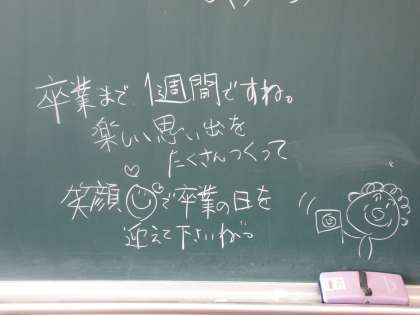 卒業まで 1週間ですね。
楽しい思い出を
たくさんつくって
笑顔で卒業の日を
迎えて下さいね。